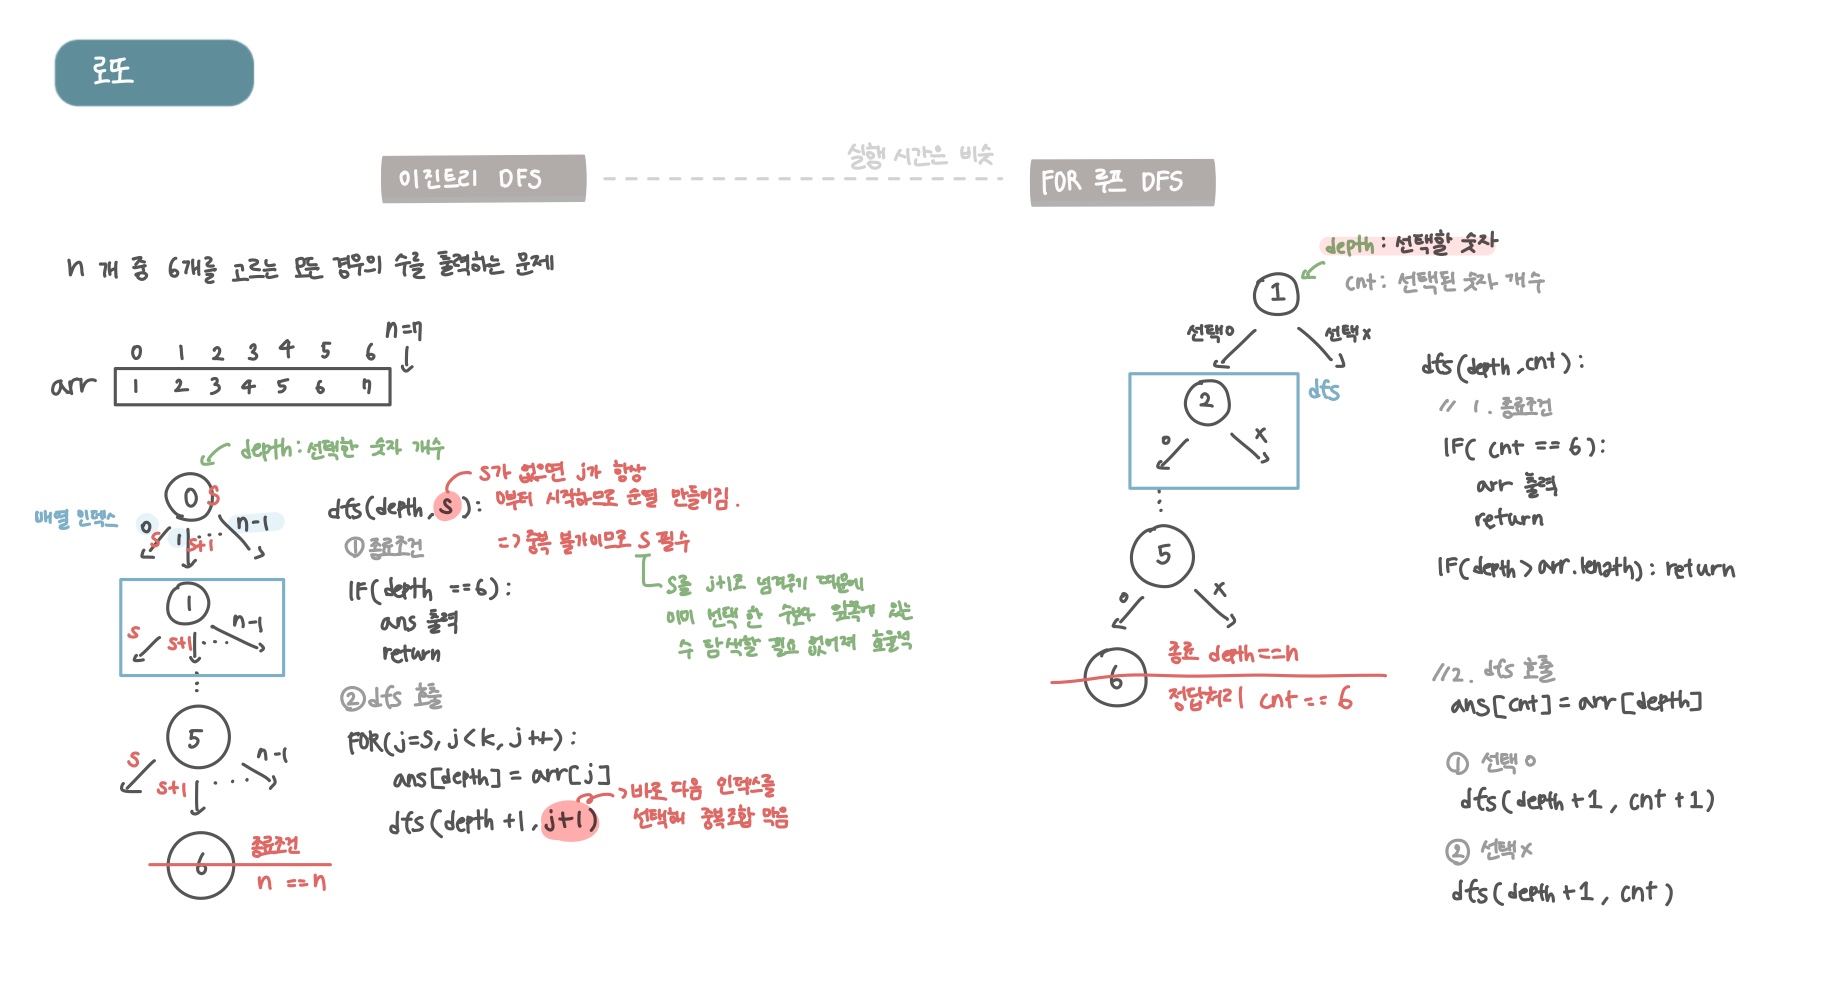 로또
이진트리 DFS
실행 시간은 비슷
FOR 루프 DFS
n 개 중 6개를 고르는 모든 경우의 수를 출력하는 문제
n=7
0 1 2 3 4 5 6
arr 1 2 3 4 5 6 7
depth : 선택한 숫자 개수
0 S
배열 인덱스
0 1 .... n-1
S S+1
1
S S+1 .... n-1
5
S S+1 .... n-1
6
종료조건
n == n
dfs(depth, S):
S가 없으면 j가 항상
0부터 시작하므로 순열 만들어짐.
=> 중복 불가이므로 S 필수
S를 j+1로 넘겨주기 때문에
이미 선택 한 수보다 앞쪽에 있는
수 탐색할 필요 없어져 효율적
① 종료조건
IF(depth ==6):
ans 출력
return
② dfs 호출
FOR(j=S, j<k, j++):
ans[depth] = arr[j]
dfs(depth +1, j+1)
바로 다음 인덱스를
선택해 중복조합 막음
depth : 선택할 숫자
cnt : 선택된 숫자 개수
1
선택o 선택x
2
dfs
o x
5
o x
6
종료 depth==n
정답처리 cnt == 6
dfs(depth, cnt):
// 1. 종료조건
IF( cnt == 6):
arr 출력
return
IF(depth > arr.length) : return
//2. dfs 호출
ans[cnt] = arr[depth]
① 선택o
dfs(depth+1, cnt+1)
② 선택x
dfs(depth+1, cnt)